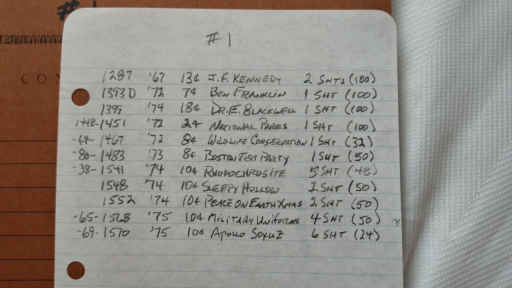 # 1
1287 '67 13¢ J.F. KENNEDY 2 SHTS (100)
1393D '72 7¢ BEN FRANKLIN 1 SHT (100)
1399 '74 18¢ DR. E. BLACKWELL 1 SHT (100)
1448-1451 '72 2¢ NATIONAL PARKS 1 SHT (100)
-64-1467 '72 8¢ WILDLIFE CONSERVATION 1 SHT (32)
-80-1483 '73 8¢ BOSTON TEA PARTY 1 SHT (50)
-38-1541 '74 10¢ RHODOCHROSITE 5 SHT (48)
1548 '74 10¢ SLEEPY HOLLOW 2 SHT (50)
1552 '74 10¢ PEACE ON EARTH XMAS 2 SHT (50)
-65-1568 '75 10¢ MILITARY UNIFORMS 4 SHT (50)
-69-1570 '75 10¢ APOLLO SOYUZ 6 SHT (24)